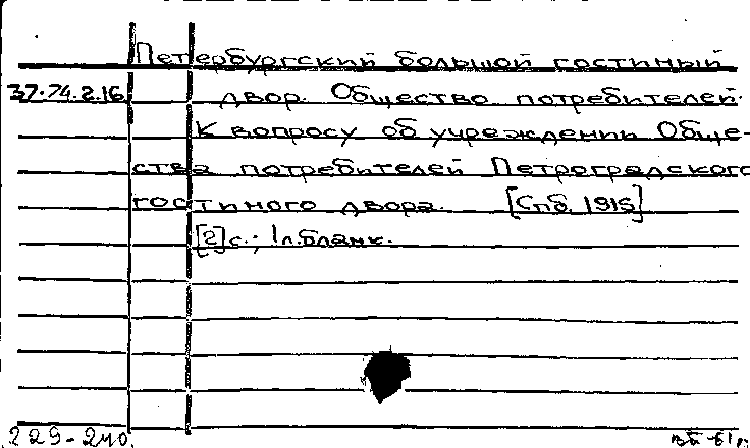 Петербургский большой гостиный
37.74.2.16 двор. Общество потребителей.
К вопросу об учреждении Обще-
ства потребителей Петроградского
гостиного двора. [Спб. 1915]
[2]с.; 1л.бланк.
229-240.